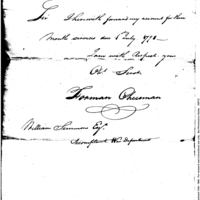 Sir I herewith forward my account for three
Month services due 1 July 1798
I am with Respect your
Obt Servt
Forman Cheesman
William Simmons Esq.
Accomptant War Department